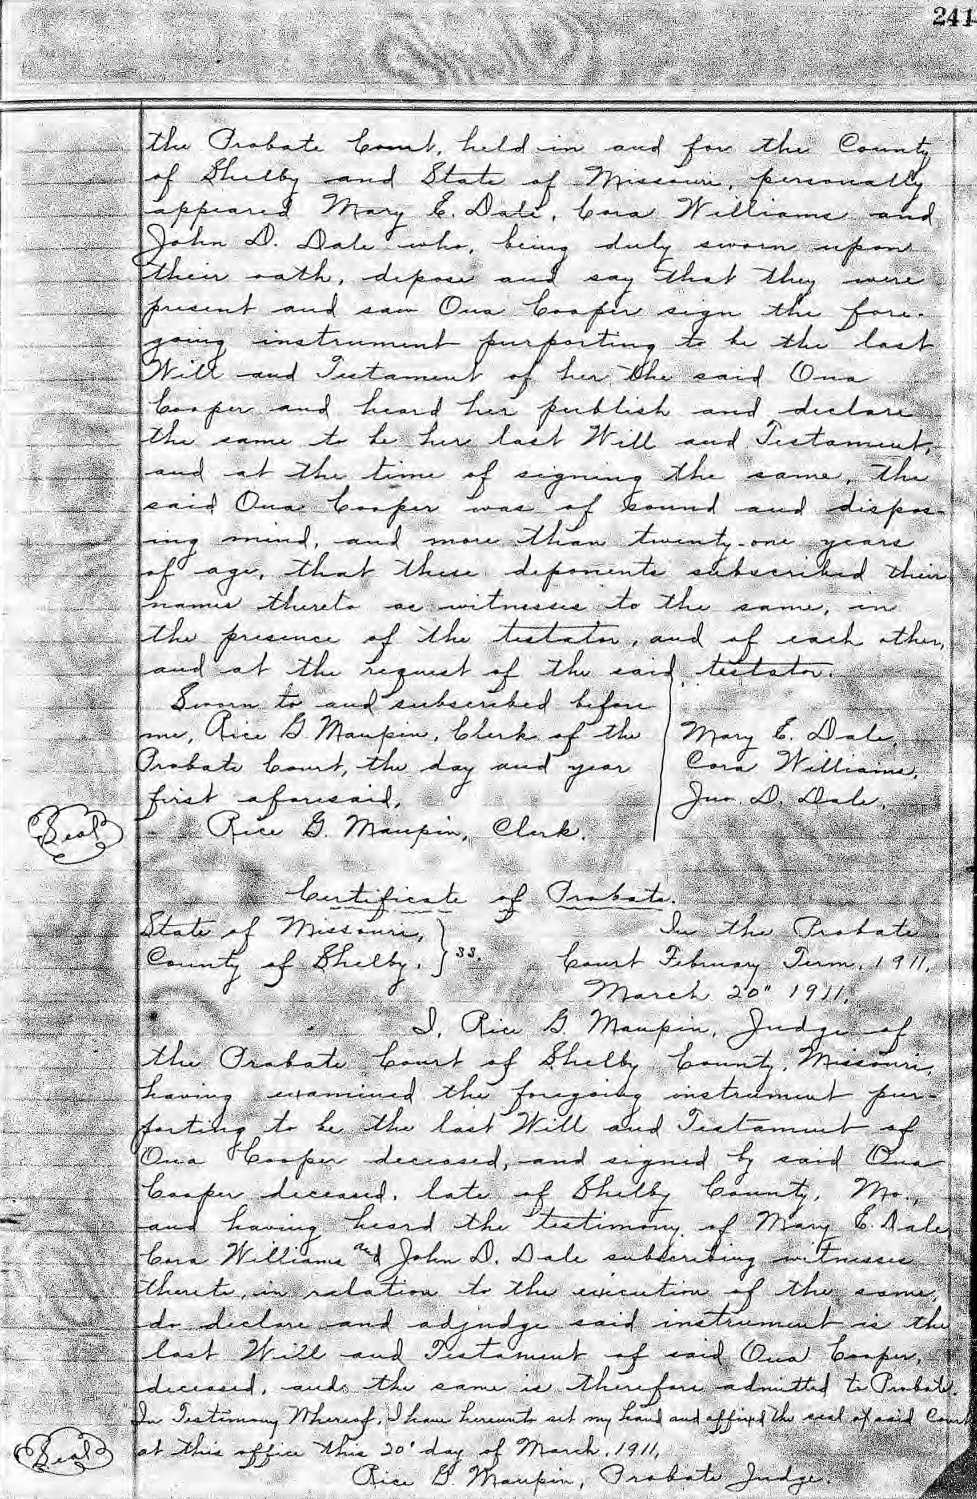 241
the Probate Court, held in and for the County
of Shelby and State of Missouri, personally
appeared Mary E. Dale, Cora Williams and
John D. Dale who, being duly sworn upon
their oath, depose and say that they were
present and saw Ona Cooper sign the fore-
going instrument purporting to be the last
Will and Testament of her, the said Ona
Cooper and heard her publish and declare
the same to be her last Will and Testament,
and at the time of signing the same, the
said Ona Cooper was of sound and dispos-
ing mind, and more than twenty-one years
of age, that these deponents subscribed their
names thereto as witnesses to the same, in
the presence of the testator, and of each other,
and at the request of the said testator.
Sworn to and subscribed before
me, Rice G. Maupin, Clerk of the
Probate Court, the day and year
first aforesaid.
Rice G. Maupin, Clerk.
Mary E. Dale,
Cora Williams,
Jno. D. Dale.
Seal
Certificate of Probate.
State of Missouri, } ss.
County of Shelby.
In the Probate
Court February Term, 1911,
March 20" 1911.
I, Rice G. Maupin, Judge of
the Probate Court of Shelby County, Missouri,
having examined the foregoing instrument pur-
porting to be the last Will and Testament of
Ona Cooper deceased, and signed by said Ona
Cooper deceased, late of Shelby County, Mo.,
and having heard the testimony of Mary E. Dale,
Cora Williams and John D. Dale subscribing witnesses
thereto, in relation to the execution of the same,
do declare and adjudge said instrument is the
last Will and Testament of said Ona Cooper,
deceased, and the same is therefore admitted to Probate.
In Testimony Whereof, I have hereunto set my hand and affixed the seal of said Court
at this office this 20' day of March, 1911,
Rice G. Maupin, Probate Judge.
Seal